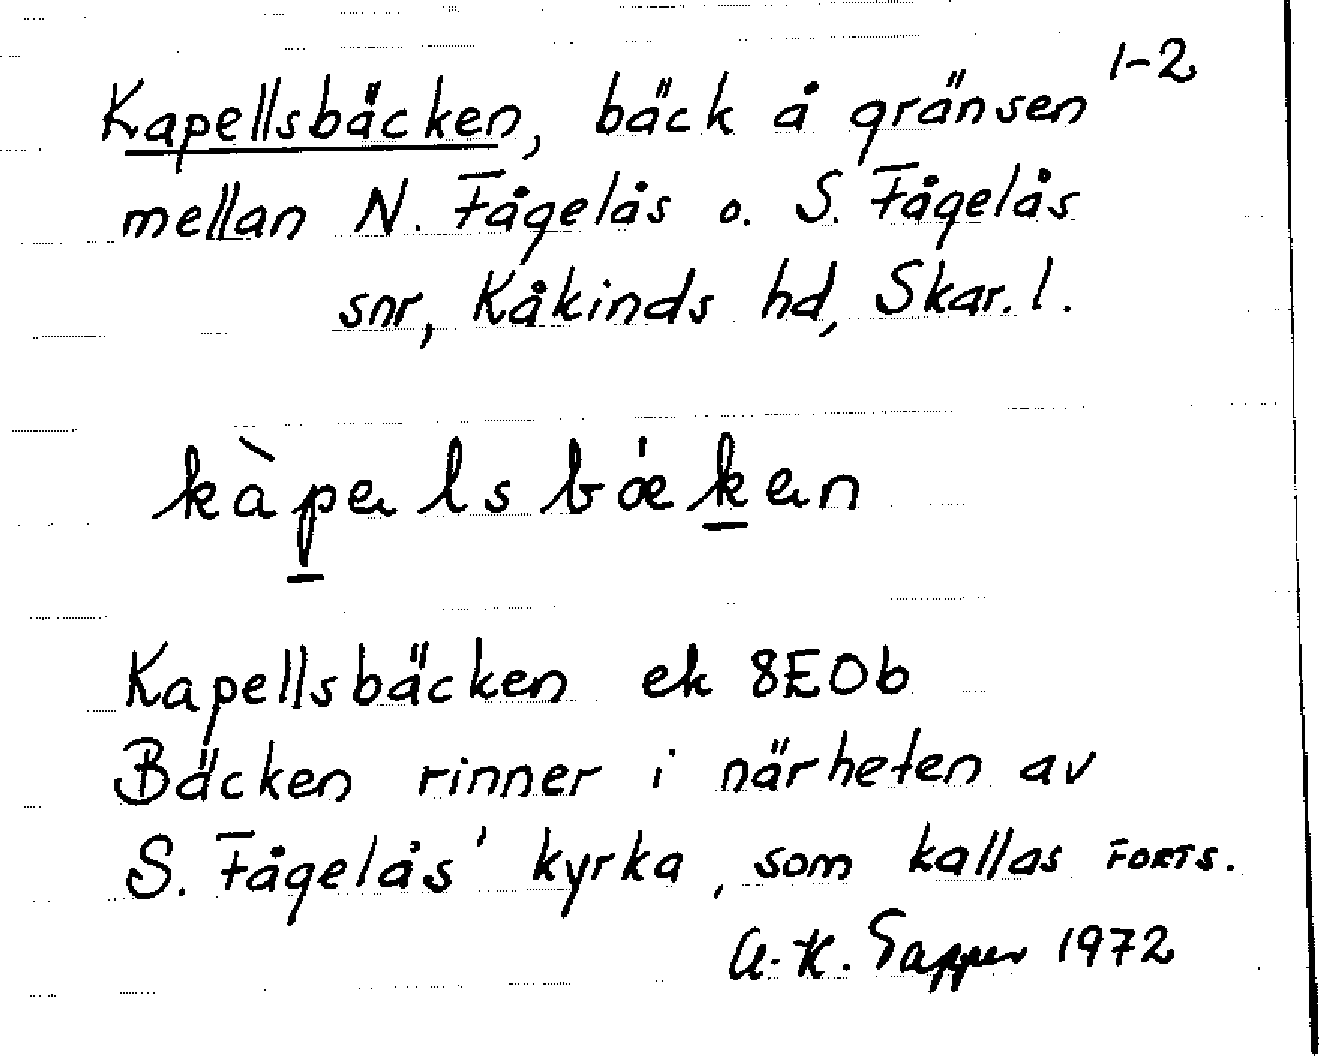 1-2
Kapellsbäcken, bäck å gränsen
mellan N. Fågelås o. S. Fågelås
snr, Kåkinds hd, Skar. l.
kàpelsbǽken
Kapellsbäcken ek 8E0b
Bäcken rinner i närheten av
S. Fågelås' kyrka, som kallas FORTS.
A.-K. Sapper 1972